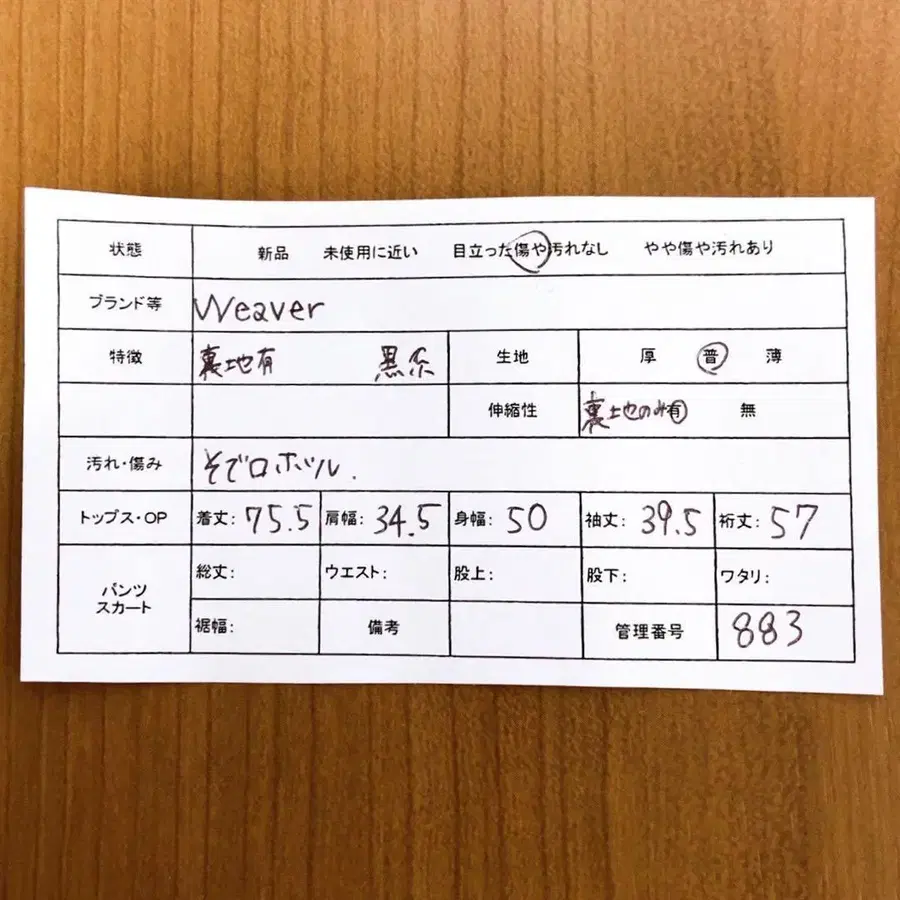 状態 新品 未使用に近い 目立った傷や汚れなし やや傷や汚れあり
ブランド等 Weaver
特徴 裏地有 黒系 生地 厚 普 薄
伸縮性 裏土地のみ有 無
汚れ・傷み そで口ホツル.
トップス・OP 着丈: 75.5 肩幅: 34.5 身幅: 50 袖丈: 39.5 裄丈: 57
パンツ スカート 総丈: ウエスト: 股上: 股下: ワタリ:
裾幅: 備考 管理番号 883